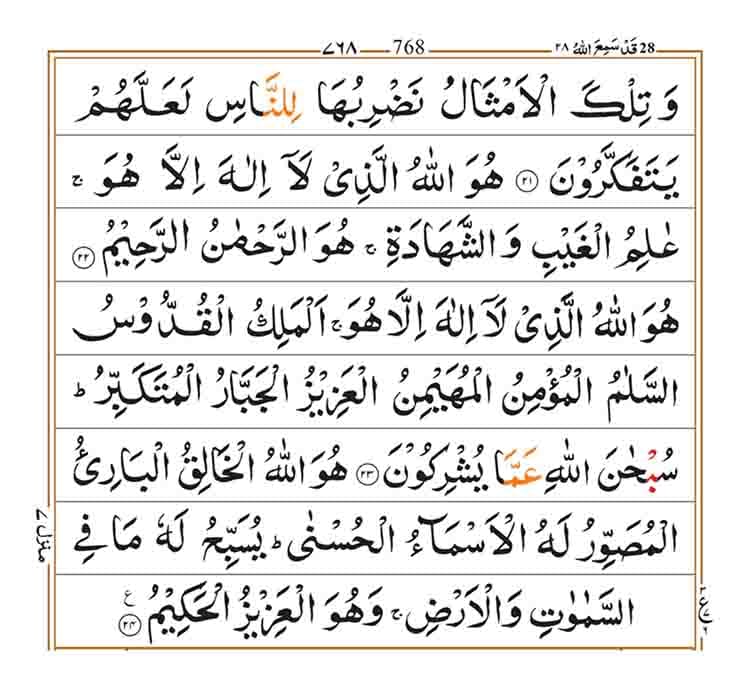 28 قَدْ سَمِعَ اللّٰهُ ۲۸ 768 ۷۶۸
وَ تِلْكَ الْاَمْثَالُ نَضْرِبُهَا لِلنَّاسِ لَعَلَّهُمْ
يَتَفَكَّرُوْنَ ﴿۲۱﴾ هُوَ اللّٰهُ الَّذِىْ لَاۤ اِلٰهَ اِلَّا هُوَ ۚ
عٰلِمُ الْغَيْبِ وَالشَّهَادَةِ ۚ هُوَ الرَّحْمٰنُ الرَّحِيْمُ ﴿۲۲﴾
هُوَ اللّٰهُ الَّذِىْ لَاۤ اِلٰهَ اِلَّا هُوَ ۚ اَلْمَلِكُ الْقُدُّوْسُ
السَّلٰمُ الْمُؤْمِنُ الْمُهَيْمِنُ الْعَزِيْزُ الْجَبَّارُ الْمُتَكَبِّرُ ؕ
سُبْحٰنَ اللّٰهِ عَمَّا يُشْرِكُوْنَ ﴿۲۳﴾ هُوَ اللّٰهُ الْخَالِقُ الْبَارِئُ
الْمُصَوِّرُ لَهُ الْاَسْمَآءُ الْحُسْنٰى ؕ يُسَبِّحُ لَهٗ مَا فِى
السَّمٰوٰتِ وَالْاَرْضِ ۚ وَهُوَ الْعَزِيْزُ الْحَكِيْمُ ﴿۲۴﴾ ع
منزل ۷